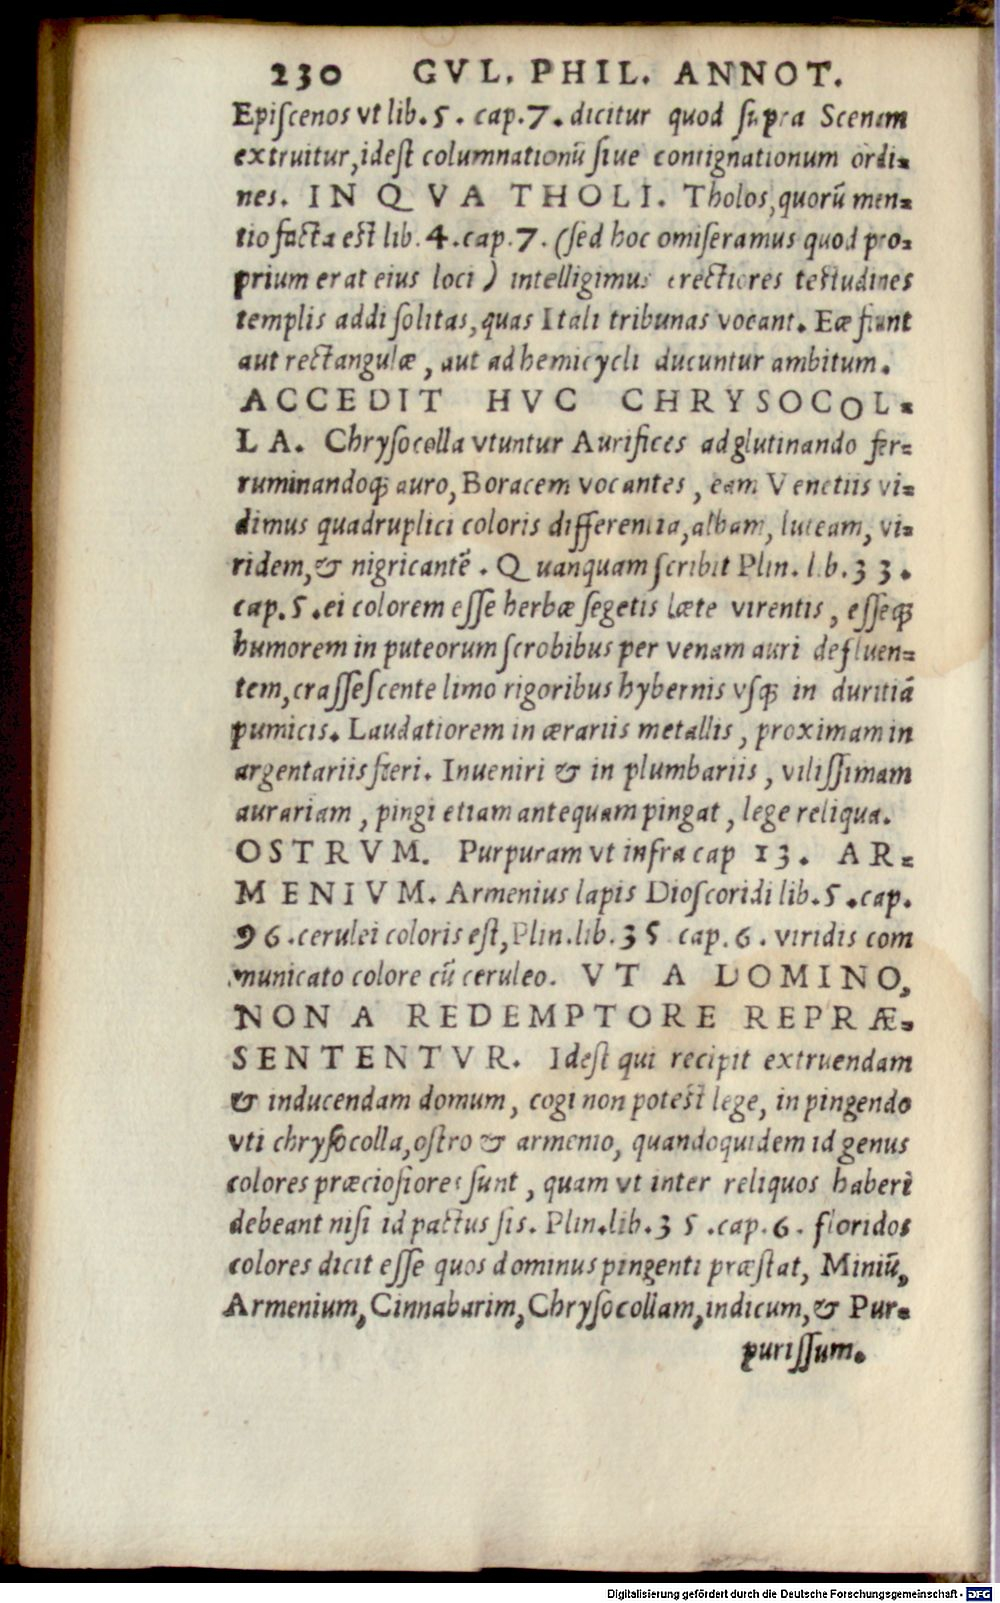 230 GVL. PHIL. ANNOT.
Epiſcenos vt lib. 5. cap. 7. dicitur quod ſupra Scenam
extruitur, ideſt columnationũ ſiue contignationum ordi-
nes. IN QVA THOLI. Tholos, quorũ men-
tio facta eſt lib. 4. cap. 7. (ſed hoc omiſeramus quod pro-
prium erat eius loci) intelligimus erectiores teſtudines
templis addi ſolitas, quas Itali tribunas vocant. Eæ fiunt
aut rectangulæ, aut ad hemicycli ducuntur ambitum.
ACCEDIT HVC CHRYSOCOL-
LA. Chryſocolla vtuntur Aurifices ad glutinando fer-
ruminandoq; auro, Boracem vocantes, eam Venetiis vi-
dimus quadruplici coloris differentia, albam, luteam, vi-
ridem, & nigricantẽ. Quanquam ſcribit Plin. lib. 33.
cap. 5. ei colorem eſſe herbæ ſegetis læte virentis, eſſeq;
humorem in puteorum ſcrobibus per venam auri defluen-
tem, craſſeſcente limo rigoribus hybernis vſq; in duritiã
pumicis. Laudatiorem in ærariis metallis, proximam in
argentariis fieri. Inueniri & in plumbariis, viliſſimam
aurariam, pingi etiam antequam pingat, lege reliqua.
OSTRVM. Purpuram vt infra cap 13. AR-
MENIVM. Armenius lapis Dioſcoridi lib. 5. cap.
96. cerulei coloris eſt, Plin. lib. 35 cap. 6. viridis com
municato colore cũ ceruleo. VT A DOMINO,
NON A REDEMPTORE REPRÆ-
SENTENTVR. Ideſt qui recipit extruendam
& inducendam domum, cogi non poteſt lege, in pingendo
vti chryſocolla, oſtro & armenio, quandoquidem id genus
colores præcioſiores ſunt, quam vt inter reliquos haberi
debeant niſi id pactus ſis. Plin. lib. 35. cap. 6. floridos
colores dicit eſſe quos dominus pingenti præſtat, Miniũ,
Armenium, Cinnabarim, Chryſocollam, indicum, & Pur-
puriſſum.
Digitalisierung gefördert durch die Deutsche Forschungsgemeinschaft - DFG